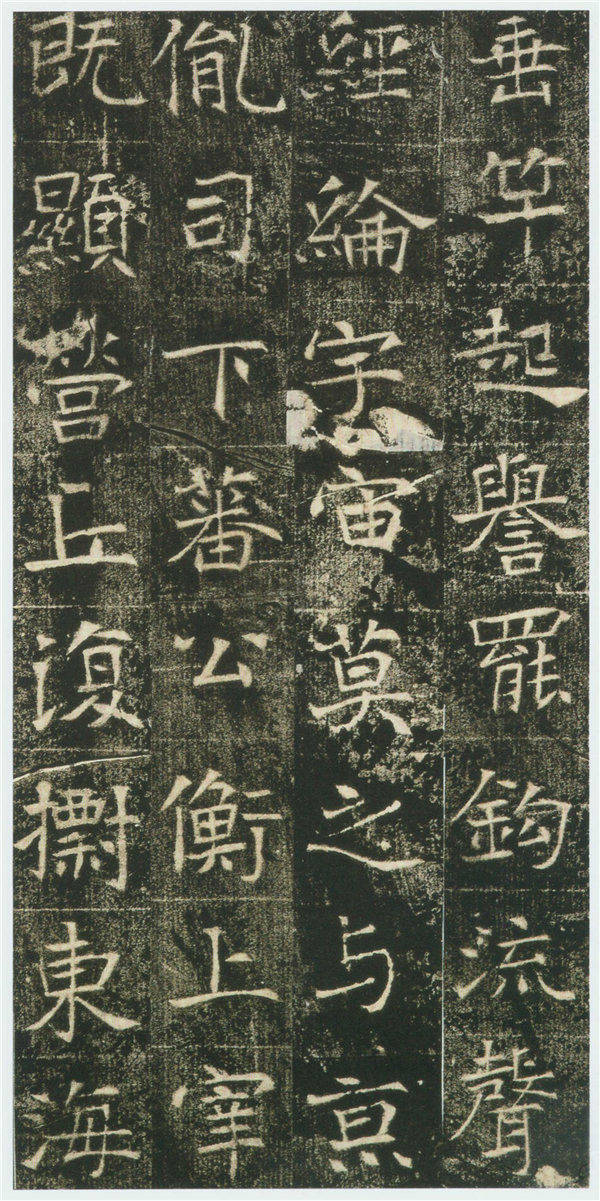 垂竿起譽罷鈎流聲
經綸宇宙莫之与京
胤司下蕃公衡上宰
既顯營丘復𢷾東海